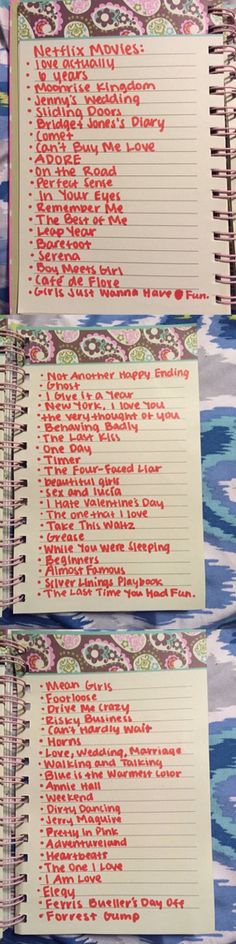 Netflix Movies:
• love actually
• 6 years
• Moonrise Kingdom
• Jenny's Wedding
• Sliding Doors
• Bridget Jones's Diary
• Comet
• Can't Buy Me Love
• ADORE
• On the Road
• Perfect Sense
• In Your Eyes
• Remember Me
• The Best of Me
• Leap Year
• Barefoot
• Serena
• Boy Meets Girl
• Café de Flore
• Girls Just Wanna Have Fun.
• Not Another Happy Ending
• Ghost
• I Give it a Year
• New York, I Love You
• the very thought of you
• Behaving Badly
• The Last Kiss
• One Day
• Timer
• The Four-Faced Liar
• beautiful girls
• Sex and lucía
• I Hate Valentine's Day
• The one that I love
• Take This Waltz
• Grease
• While You Were Sleeping
• Beginners
• Almost Famous
• Silver Linings Playbook
• The Last Time You Had Fun.
• Mean Girls
• Footloose
• Drive Me Crazy
• Risky Business
• Can't Hardly Wait
• Horns
• Love, Wedding, Marriage
• Walking and Talking
• Blue is the Warmest Color
• Annie Hall
• Weekend
• Dirty Dancing
• Jerry Maguire
• Pretty in Pink
• Adventureland
• Heartbeats
• The One I Love
• I Am Love
• Elegy
• Ferris Bueller's Day Off
• Forrest Gump